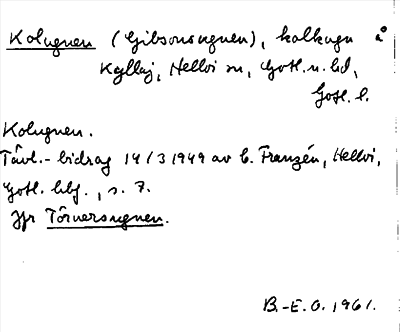 Kolugnen (Gibsonsugnen), kalkugn å
Kyllaj, Hellvi sn, Gotl. n. hd,
Gotl. l.
Kolugnen.
Tävl.-bidrag 14/3 1949 av C. Franzén, Hellvi,
Gotl. hbf., s. 7.
Jfr Törnersugnen.
B.-E. O. 1961.